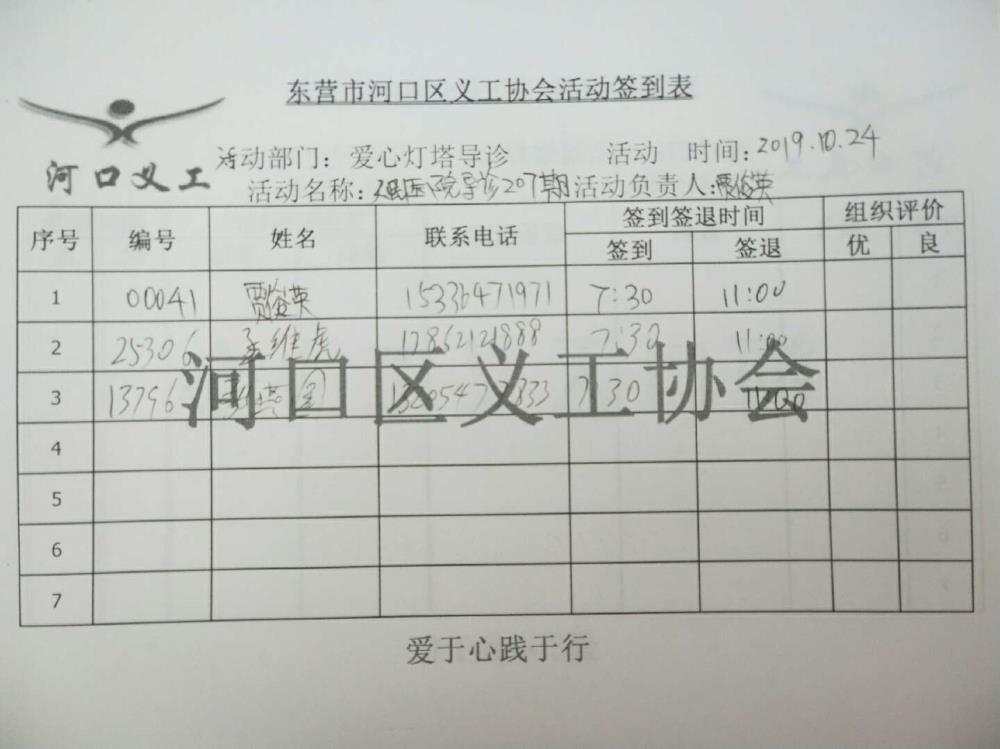 东营市河口区义工协会活动签到表
河口义工
活动部门：爱心灯塔导诊 活动 时间：2019.10.24
活动名称：人民医院导诊207期 活动负责人：贾俊英
序号 编号 姓名 联系电话 签到签退时间 组织评价
签到 签退 优 良
1 00041 贾俊英 15336471971 7:30 11:00
2 25306 孟维虎 17862121888 7:30 11:00
3 13796 7:30 11:00
河口区义工协会
4
5
6
7
爱于心践于行